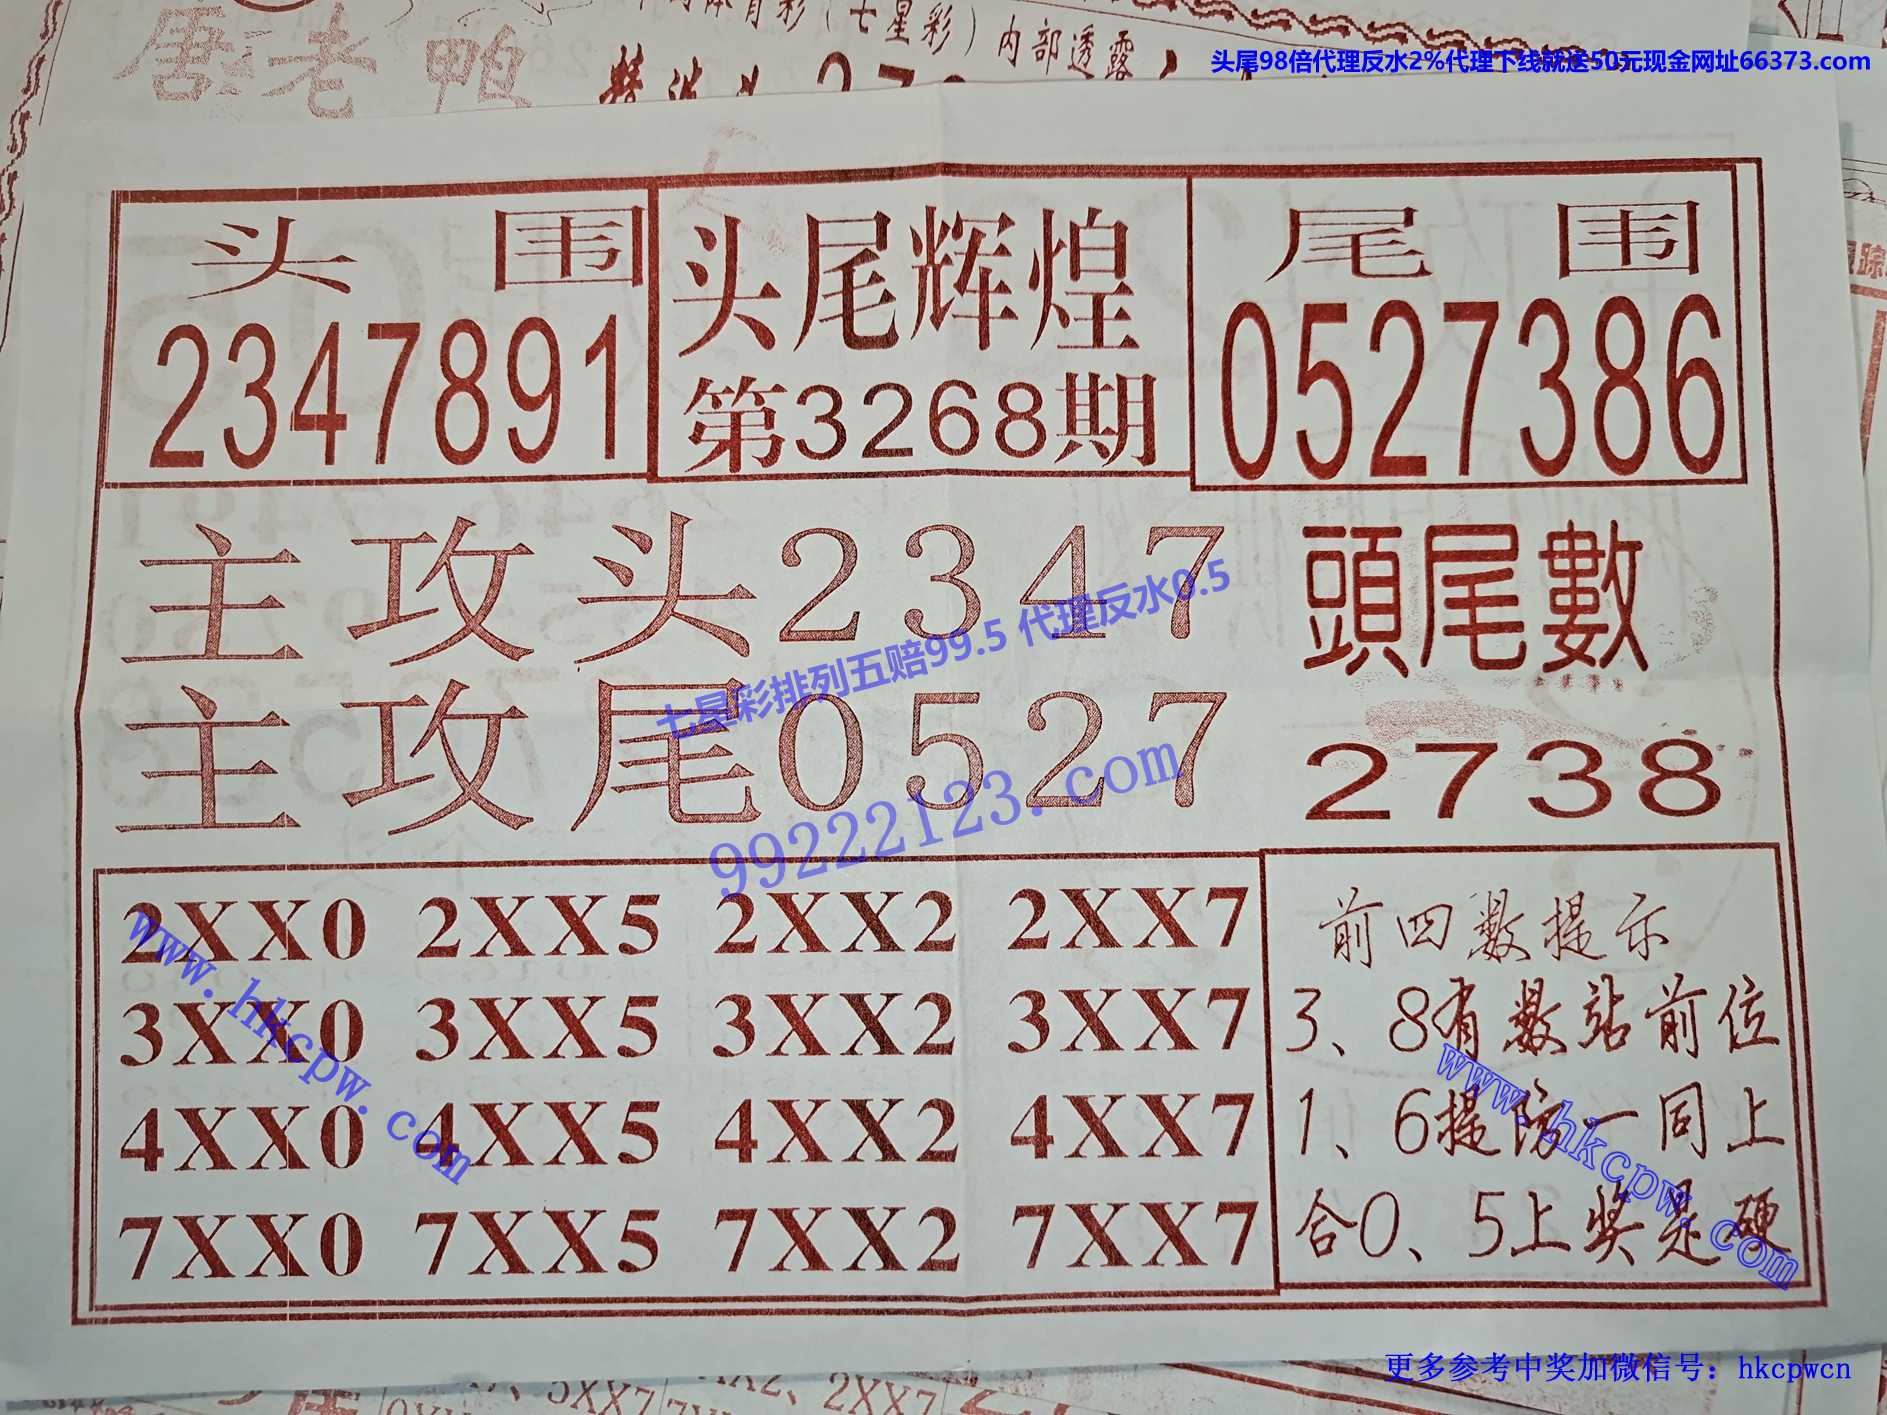 体育彩(七星彩)内部透露
唐老鸭
头尾98倍代理反水2%代理下线就送50元现金网址66373.com
头围
2347891
头尾辉煌
第3268期
尾围
0527386
主攻头2347
主攻尾0527
頭尾數
2738
七星彩排列五赔99.5 代理反水0.5
99222123.com
2XX0 2XX5 2XX2 2XX7
3XX0 3XX5 3XX2 3XX7
4XX0 4XX5 4XX2 4XX7
7XX0 7XX5 7XX2 7XX7
www.hkcpw.com
前四数提示
3、8有数站前位
1、6提防一同上
合0、5上奖是硬
www.hkcpw.com
更多参考中奖加微信号：hkcpwcn
5XX7
2XX7